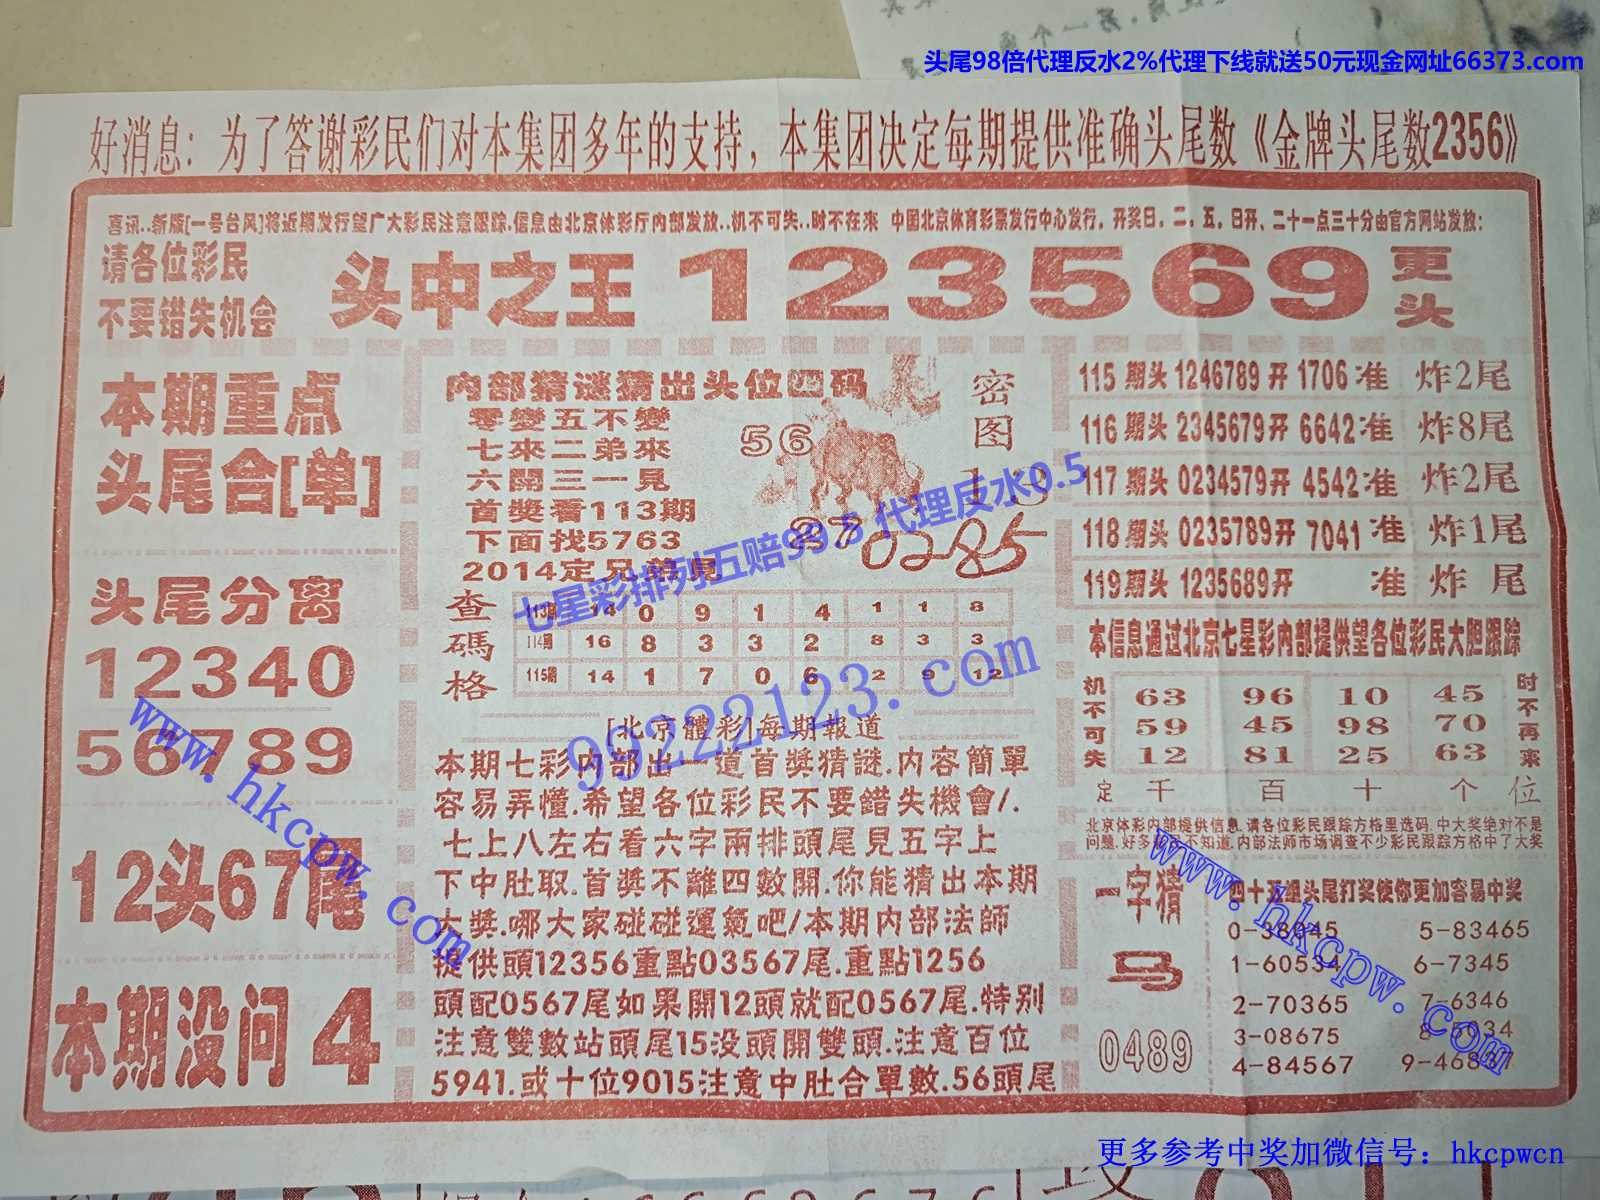 头尾98倍代理反水2%代理下线就送50元现金网址66373.com
好消息：为了答谢彩民们对本集团多年的支持，本集团决定每期提供准确头尾数《金牌头尾数2356》
喜讯..新版[一号台风]将近期发行望广大彩民注意跟踪.信息由北京体彩厅内部发放..机不可失..时不在来 中国北京体育彩票发行中心发行，开奖日，二。五，日开、二十一点三十分由官方网站发放：
请各位彩民
不要错失机会
头中之王 123569 更头
本期重点
头尾合[单]
头尾分离
12340
56789
12头67尾
本期没问 4
内部猜谜猜出头位四码
零變五不變
七來二弟來
六開三一見
首獎看113期
下面找5763
2014定兄弟見
密图
56
13
27
0285
查碼格
113期 14 0 9 1 4 1 1 8
114期 16 8 3 3 2 8 3 3
115期 14 1 7 0 6 2 9 12
[北京體彩]每期報道
本期七彩内部出一道首獎猜謎.内容簡單
容易弄懂.希望各位彩民不要錯失機會/.
七上八左右看六字兩排頭尾見五字上
下中肚取.首獎不離四數開.你能猜出本期
大獎.哪大家碰碰運氣吧/本期内部法師
提供頭12356重點03567尾.重點1256
頭配0567尾如果開12頭就配0567尾.特别
注意雙數站頭尾15没頭開雙頭.注意百位
5941.或十位9015注意中肚合單數.56頭尾
115期头1246789开1706准 炸2尾
116期头2345679开6642准 炸8尾
117期头0234579开4542准 炸2尾
118期头0235789开7041准 炸1尾
119期头1235689开 准 炸 尾
本信息通过北京七星彩内部提供望各位彩民大胆跟踪
机不可失
63 96 10 45
59 45 98 70
12 81 25 63
时不再来
定 千 百 十 个 位
北京体彩内部提供信息.请各位彩民跟踪方格里选码.中大奖绝对不是
问题.好多彩民不知道.内部法师市场调查不少彩民跟踪方格中了大奖
一字猜
马
0489
四十五组头尾打奖使你更加容易中奖
0-38045 5-83465
1-60534 6-7345
2-70365 7-6346
3-08675
4-84567
七星彩排列五赔99.5代理反水0.5
99222123.com
www.hkcpw.com
www.hkcpw.com
更多参考中奖加微信号：hkcpwcn